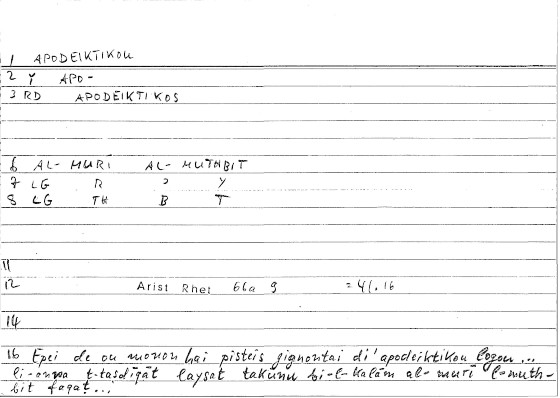 1 APODEIKTIKOU
2 Y APO-
3 RD APODEIKTIKOS
6 AL-MURĪ AL-MUTHBIT
7 LG R ʾ Y
8 LG TH B T
11
12 Arist Rhet 66a 9 =41.16
14
16 Epei de ou monon hai pisteis gignontai di'apodeiktikou logou...
li-anna t-tasdīqāt laysat takūnu bi-l-kalām al-murī l-muth-
bit faqat...